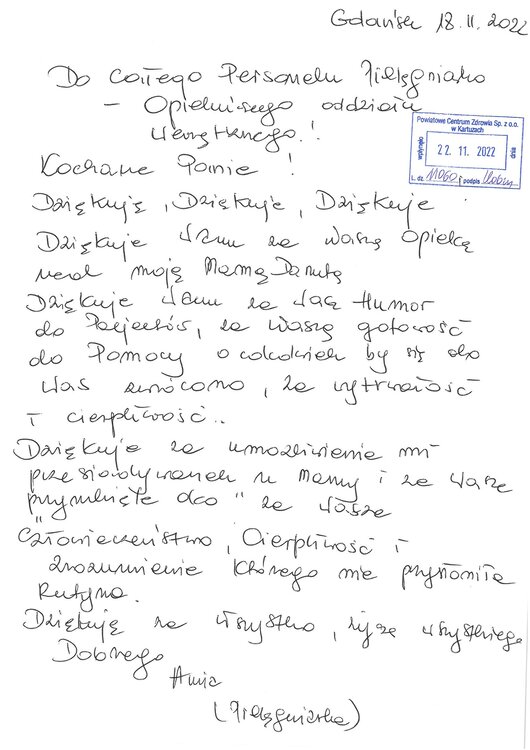 Gdańsk 18.11.2022
Do całego Personelu Pielęgniarko
- Opiekuńczego oddziału
Wewnętrznego!
Powiatowe Centrum Zdrowia Sp. z o.o.
w Kartuzach
wpłynęło 22. 11. 2022 dnia
L. dz. 11060 podpis
Kochane Panie !
Dziękuję, Dziękuje, Dziękuje
Dziękuje Wam za Waszą Opiekę
nad moją Mamą Danutą
Dziękuje Wam za Wasz Humor
do Pacjentów, za Waszą gotowość
do Pomocy o cokolwiek by się do
Was zwrócono, za wytrwałość
i cierpliwość..
Dziękuje za umożliwienie mi
przesiadywanek u Mamy i za Wasze
"przymknięte oko" za Wasze
Człowieczeństwo, Cierpliwość i
Zrozumienie którego nie przysłoniła
Rutyna.
Dziękuję za wszystko, życzę wszystkiego
Dobrego
Ania
(Pielęgniarka)